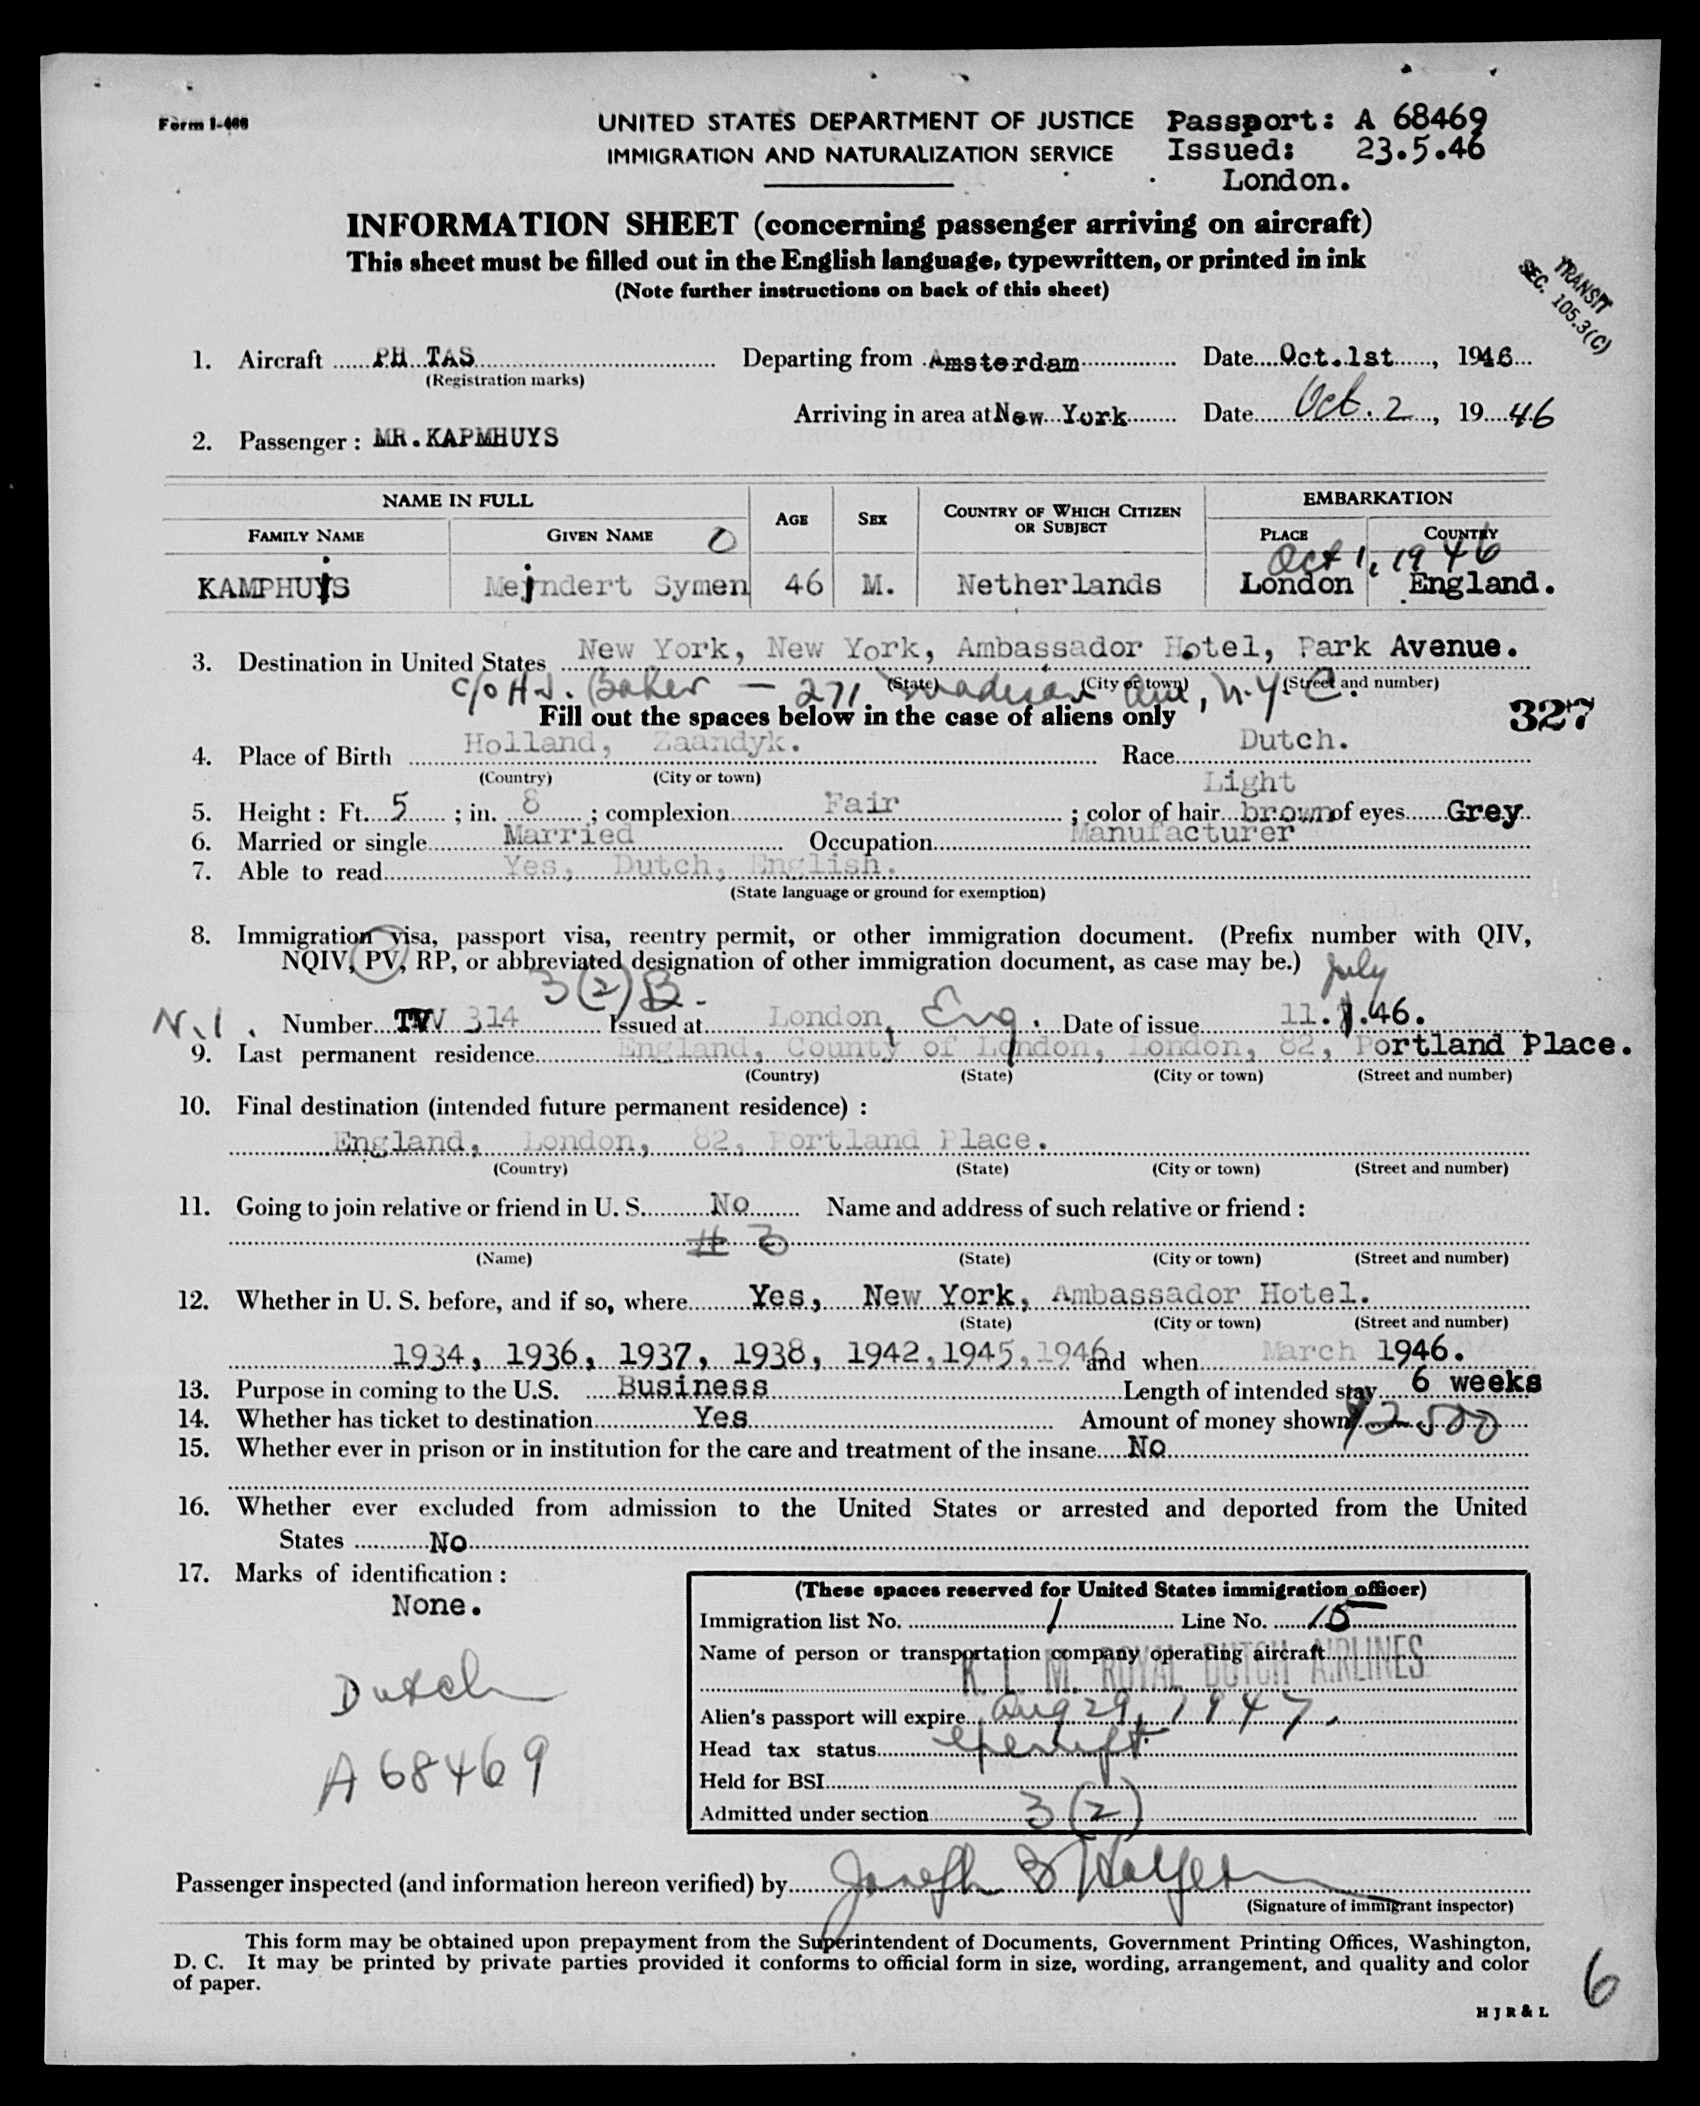 Form I-466
UNITED STATES DEPARTMENT OF JUSTICE
IMMIGRATION AND NATURALIZATION SERVICE
Passport: A 68469
Issued: 23.5.46
London.
INFORMATION SHEET (concerning passenger arriving on aircraft)
This sheet must be filled out in the English language, typewritten, or printed in ink
(Note further instructions on back of this sheet)
TRANSIT
SEC. 105.3(C)
1. Aircraft PH TAS Departing from Amsterdam Date Oct.1st, 1946
(Registration marks)
Arriving in area at New York Date Oct. 2, 19 46
2. Passenger: MR.KAPMHUYS
NAME IN FULL AGE SEX COUNTRY OF WHICH CITIZEN OR SUBJECT EMBARKATION
FAMILY NAME GIVEN NAME O PLACE COUNTRY
Oct 1, 1946
KAMPHUIS Meindert Symen 46 M. Netherlands London England.
3. Destination in United States New York, New York, Ambassador Hotel, Park Avenue.
(State) (City or town) (Street and number)
c/o H.J. Baker - 271 Madison Ave, N.Y.C.
Fill out the spaces below in the case of aliens only
327
4. Place of Birth Holland, Zaandyk. Race Dutch.
(Country) (City or town)
5. Height: Ft. 5; in. 8; complexion Fair; color of hair Light brown of eyes Grey
6. Married or single Married Occupation Manufacturer
7. Able to read Yes, Dutch, English.
(State language or ground for exemption)
8. Immigration visa, passport visa, reentry permit, or other immigration document. (Prefix number with QIV,
NQIV, PV, RP, or abbreviated designation of other immigration document, as case may be.)
3(2)B. July
N.I. Number TWV 314 Issued at London, Eng. Date of issue 11.7.46.
9. Last permanent residence England, County of London, London, 82, Portland Place.
(Country) (State) (City or town) (Street and number)
10. Final destination (intended future permanent residence) :
England, London, 82, Portland Place.
(Country) (State) (City or town) (Street and number)
11. Going to join relative or friend in U. S. No Name and address of such relative or friend :
# 3
(Name) (State) (City or town) (Street and number)
12. Whether in U. S. before, and if so, where Yes, New York, Ambassador Hotel.
(State) (City or town) (Street and number)
1934, 1936, 1937, 1938, 1942, 1945, 1946 and when March 1946.
13. Purpose in coming to the U.S. Business Length of intended stay 6 weeks
14. Whether has ticket to destination Yes Amount of money shown $2500
15. Whether ever in prison or in institution for the care and treatment of the insane No
16. Whether ever excluded from admission to the United States or arrested and deported from the United
States No
17. Marks of identification :
None.
Dutch
A 68469
(These spaces reserved for United States immigration officer)
Immigration list No. 1 Line No. 15
Name of person or transportation company operating aircraft
K. L. M. ROYAL DUTCH AIRLINES
Alien's passport will expire Aug 29, 1947.
Head tax status exempt
Held for BSI
Admitted under section 3(2)
Passenger inspected (and information hereon verified) by Joseph
(Signature of immigrant inspector)
This form may be obtained upon prepayment from the Superintendent of Documents, Government Printing Offices, Washington,
D. C. It may be printed by private parties provided it conforms to official form in size, wording, arrangement, and quality and color
of paper.
H J R & L
6